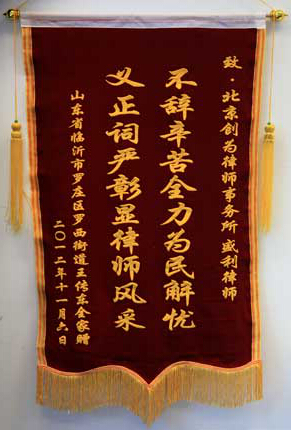 致·北京创为律师事务所盛利律师
不辞辛苦全力为民解忧
义正词严彰显律师风采
山东省临沂市罗庄区罗西街道王传东全家赠
二〇一二年十一月六日